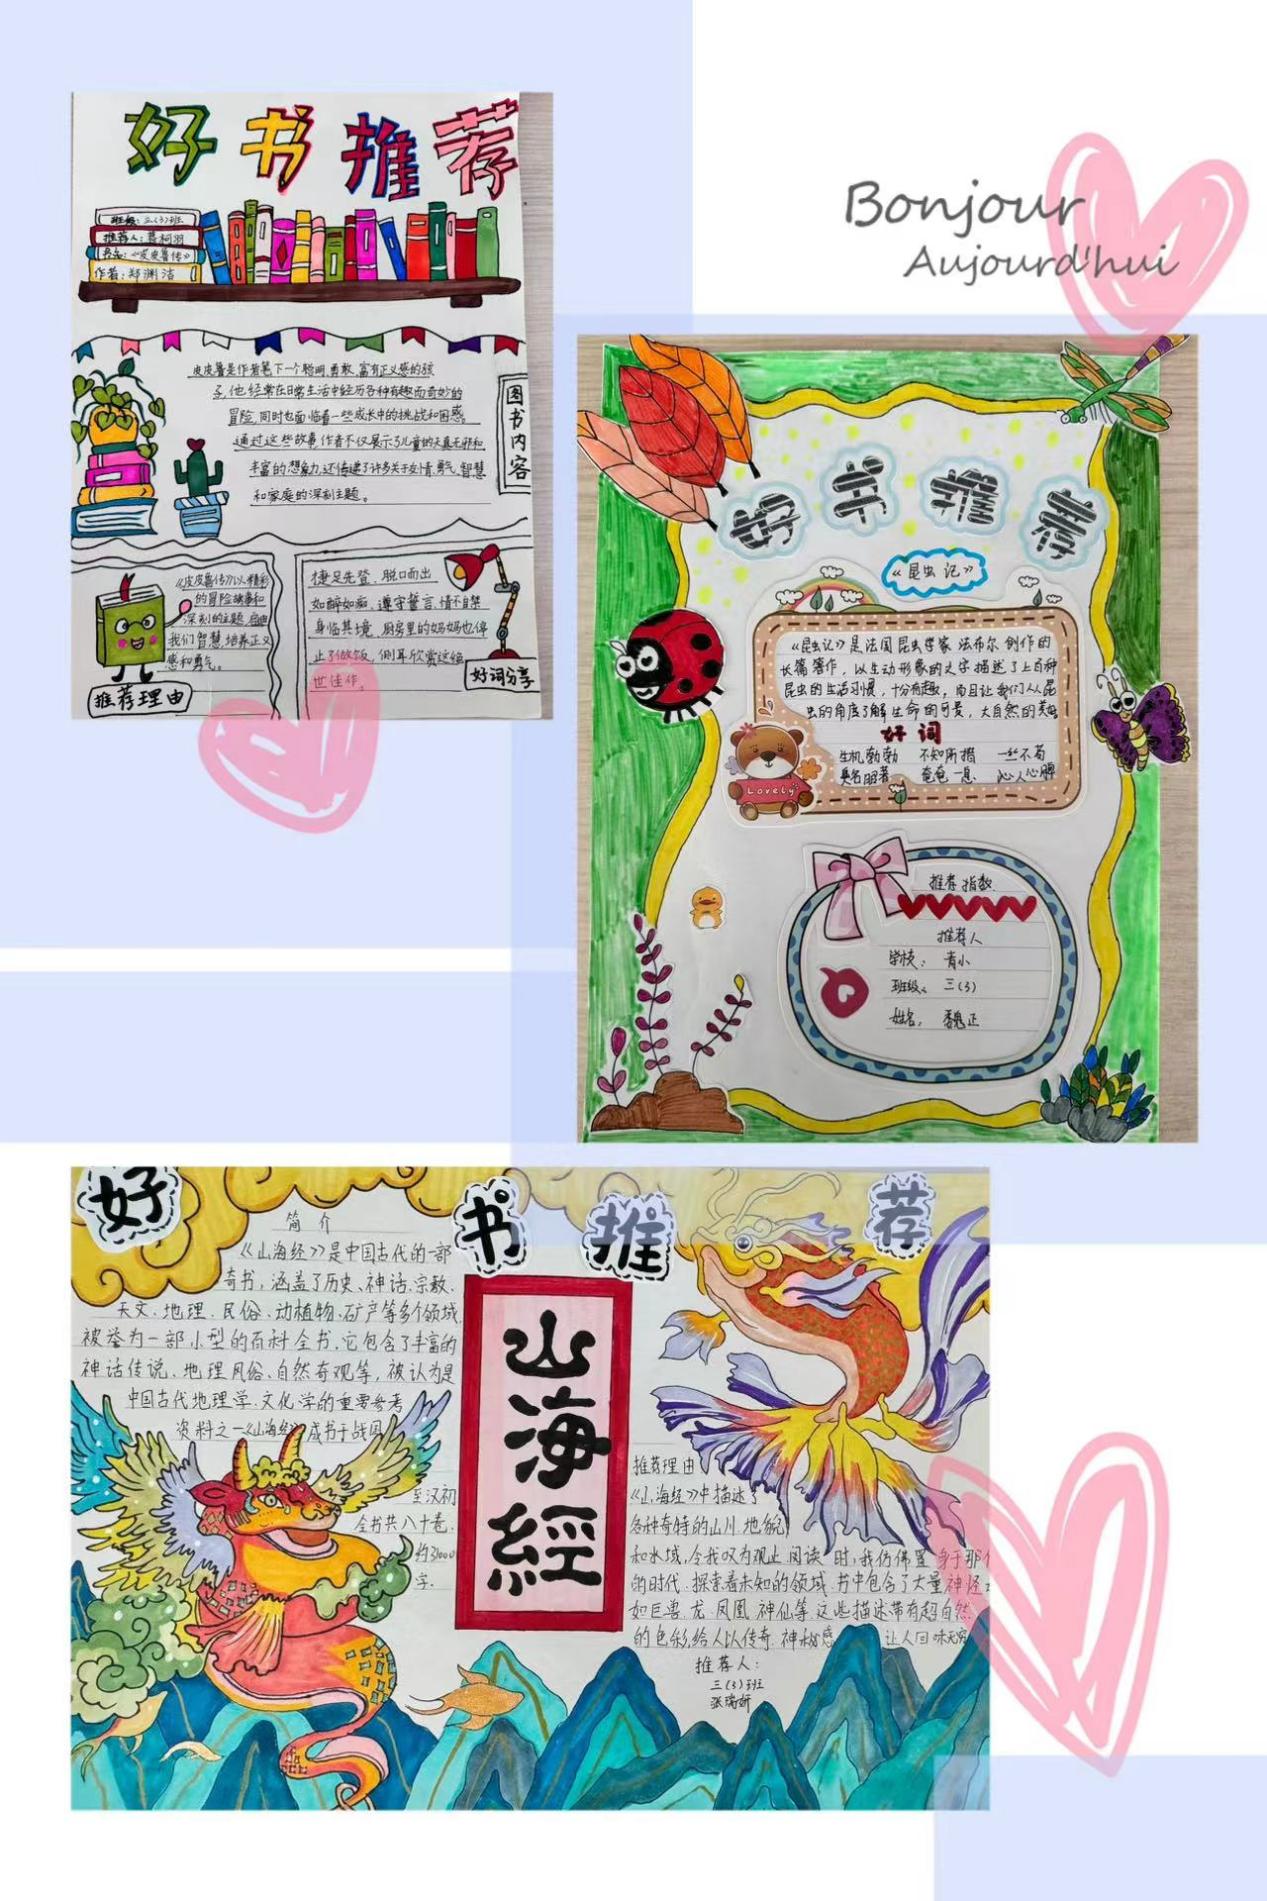 好书推荐
班级：三(3)班
推荐人：葛柯羽
书名：《皮皮鲁传》
作者：郑渊洁
皮皮鲁是作者笔下一个聪明、勇敢、富有正义感的孩
子，他经常在日常生活中经历各种有趣而奇妙的
冒险，同时也面临着一些成长中的挑战和困惑。
通过这些故事，作者不仅展示了儿童的天真无邪和
丰富的想象力，还传递了许多关于友情、勇气、智慧
和家庭的深刻主题。
图书内容
《皮皮鲁传》以精彩
的冒险故事和
深刻的主题，启迪
我们智慧，培养正义
感和勇气。
推荐理由
捷足先登、脱口而出
如醉如痴、遵守誓言、情不自禁
身临其境、厨房里的妈妈也停
止了做饭，侧耳欣赏这绝
世佳作。
好词分享
Bonjour
Aujourd'hui
好书推荐
《昆虫记》
《昆虫记》是法国昆虫学家法布尔创作的
长篇著作，以生动形象的文字描述了上百种
昆虫的生活习惯，十分有趣，而且让我们从昆
虫的角度了解生命的可贵，大自然的美妙
好词
生机勃勃 不知所措 一丝不苟
臭名昭著 奄奄一息 沁人心脾
Lovely
推荐指数
推荐人
学校：青小
班级：三(3)
姓名：魏正
好书推荐
简介
《山海经》是中国古代的一部
奇书，涵盖了历史、神话、宗教、
天文、地理、民俗、动植物、矿产等多个领域，
被誉为一部小型的百科全书。它包含了丰富的
神话传说、地理风俗、自然奇观等，被认为是
中国古代地理学、文化学的重要参考
资料之一《山海经》成书于战国
至汉初
全书共八十卷，
约31000
字。
山海經
推荐理由
《山海经》中描述了
各种奇特的山川、地貌
和水域，令我叹为观止。阅读时，我仿佛置身于那个
的时代，探索着未知的领域。书中包含了大量神怪
如巨兽、龙、凤凰、神仙等，这些描述带有超自然
的色彩，给人以传奇、神秘感 让人回味无穷
推荐人：
三(3)班
张瑞妍